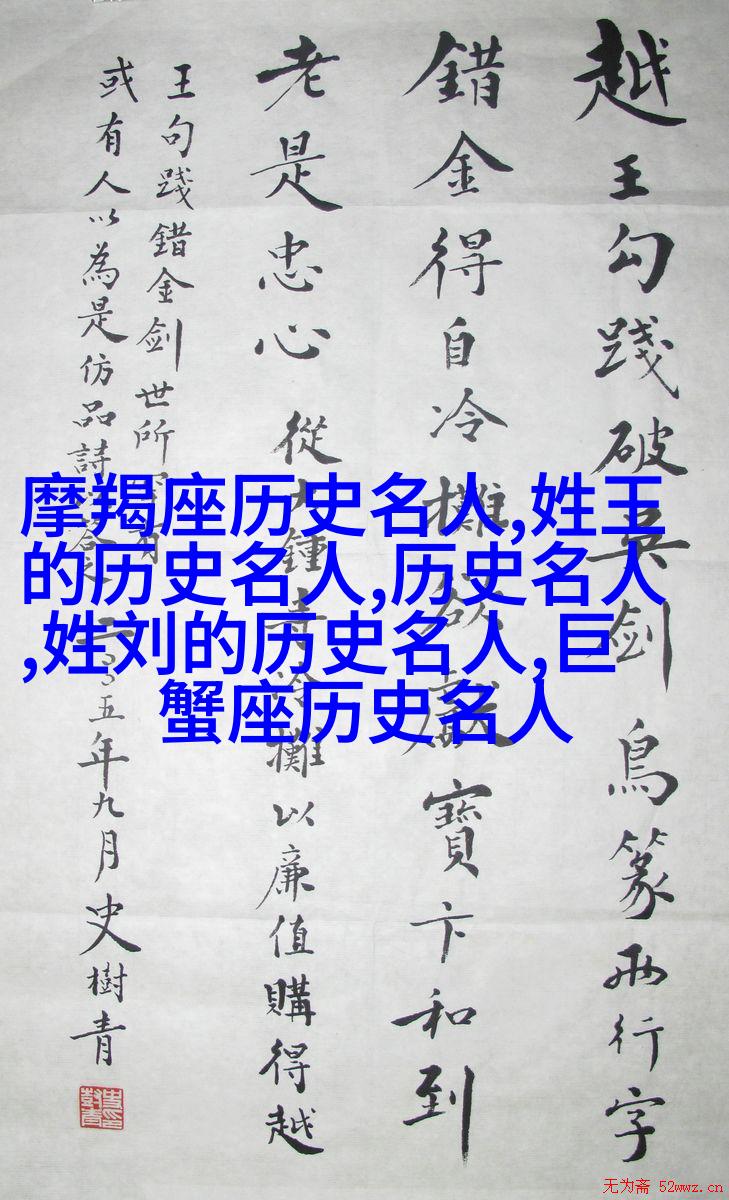 越王勾践破吴剑鳥篆两行字
錯金得自冷攤欲識寶卞和到
老是忠心 從大鐘寺冷攤以廉值購得越
王句践錯金剑世所
或有人以為是仿品詩 二〇〇五年九月史樹青
摩羯座历史名人,姓王
的历史名人,历史名人
,姓刘的历史名人,巨
蟹座历史名人
无为斋 52wwz.cn